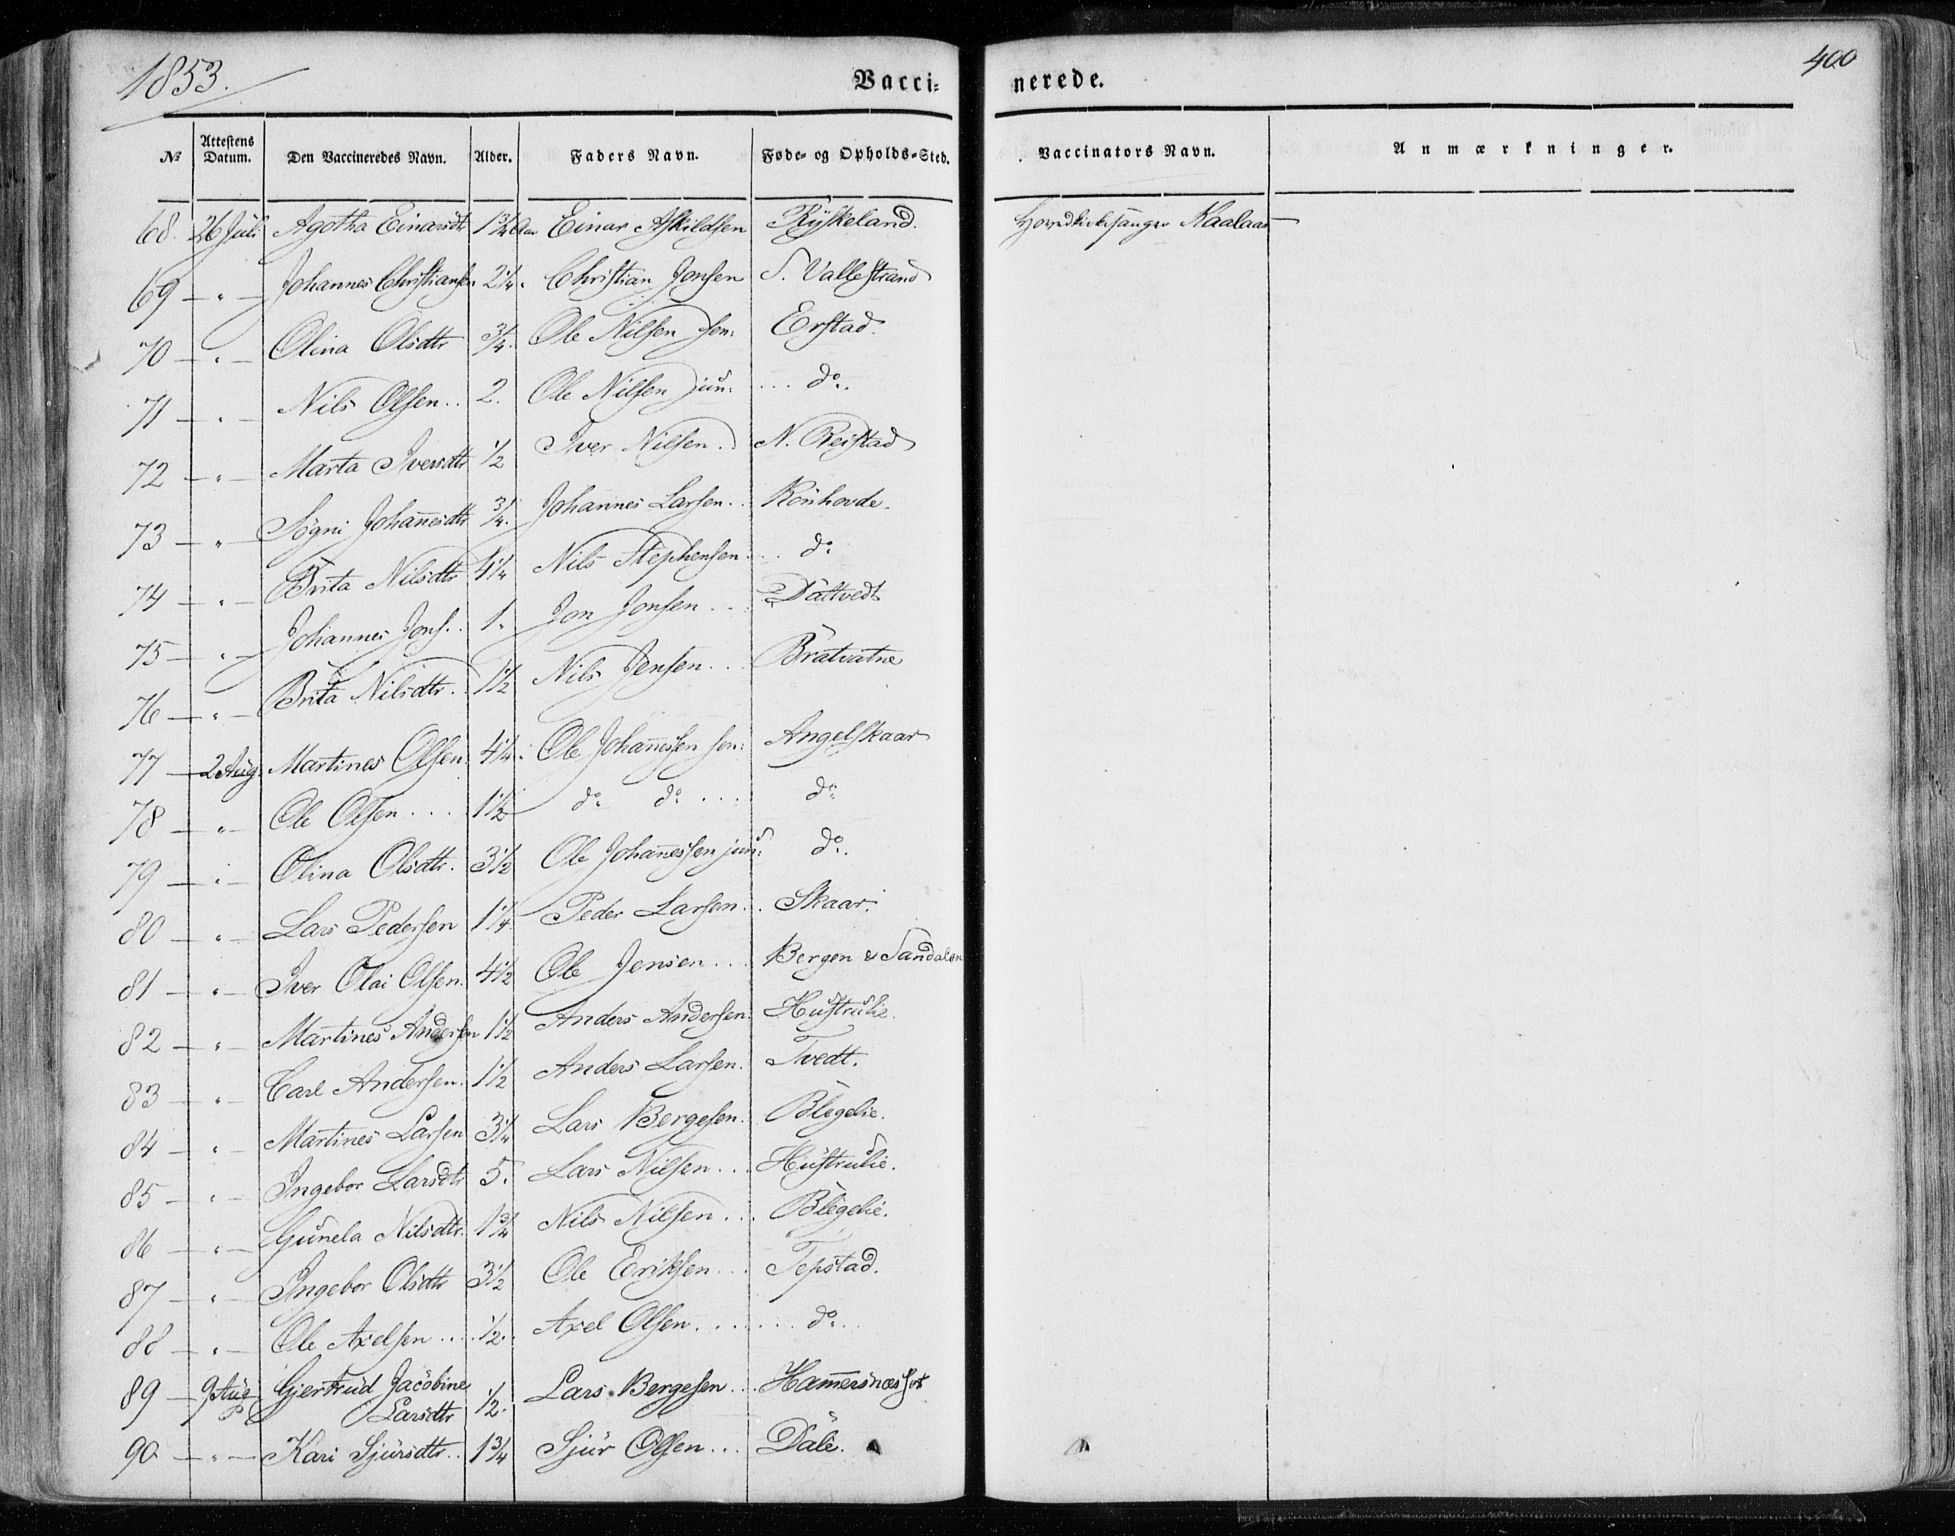 1853. Vacci- nerede. 400
№ Attestens Datum. Den Vaccineredes Navn. Alder. Faders Navn. Føde- og Opholds-Sted. Vaccinators Navn. Anmærkninger.
68. 26 Juli Agotha Einarsdtr 1 3/4 Aar Einar Askildsen Rysseland. Kaalaas
69 — " — Johannes Christiansen 2 1/4. Christian Jonsen S. Vallestrand
70 — " — Olina Olsdtr 3/4. Ole Nilsen sen: Erstad.
71 — " — Nils Olsen.. 2. Ole Nilsen jun: ... do.
72 — " — Marta Iversdtr 1/2 Iver Nilsen.. N. Reistad
73 — " — Søgni Johannesdtr 3/4. Johannes Larsen.. Rönhovde.
74 — " — Brita Nilsdtr 4 1/4 Nils Stephensen... do
75 — " — Johannes Jons.. 1. Jon Jonsen... Dattvedt
76 — " — Brita Nilsdtr. 1 1/2 Nils Jensen... Bratvatne
77 — 2 Aug. Martines Olsen 4 1/4. Ole Johannessen sen: Angelskaar
78 — " — Ole Olsen.... 1 1/2 do do.... do
79 — " — Olina Olsdtr. 3 1/2 Ole Johannessen jun: do.
80 — " — Lars Pedersen 1 1/4 Peder Larsen.. Skaar.
81 — " — Iver Olai Olsen. 4 1/2 Ole Jensen... Bergen & Sandalen
82 — " — Martines Andersen 1 1/2 Anders Andersen. Hustrulie.
83 — " — Carl Andersen. 1 1/2 Anders Larsen. Tvedt.
84 — " — Martines Larsen 3 1/4 Lars Bergesen. Blegelie.
85 — " — Ingebor Larsdtr 5. Lars Nilsen... Hustrulie.
86 — " — Gunela Nilsdtr. 1 3/4 Nils Nilsen... Blegelie.
87 — " — Ingebor Olsdtr 3 1/2 Ole Eriksen... Tepstad.
88 — " — Ole Axelsen.... 1/2. Axel Olsen....... do...
89 — 9 Aug Gjertrud Jacobine
Larsdtr 1/2. Lars Bergesen.. Hammersnes
90 — " — Kari Sjursdtr.. 1 3/4 Sjur Olsen... Dale.